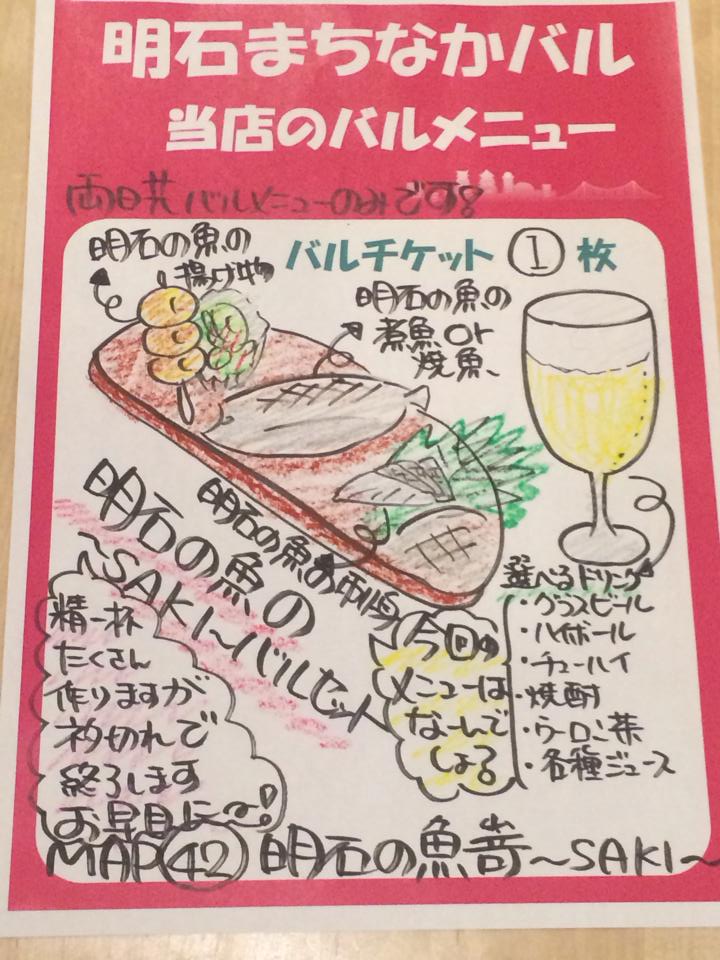 明石まちなかバル
当店のバルメニュー
両日共バルメニューのみです!
バルチケット ① 枚
明石の魚の
揚げ物
明石の魚の
煮魚or
焼魚
明石の魚のお刺身
明石の魚の
~SAKI~バルセット
精一杯
たくさん
作りますが
ネタ切れで
終了します
お早目に~!
今回の
メニューは
なーんで
しょう
選べるドリンク
・グラスビール
・ハイボール
・チューハイ
・焼酎
・ウーロン茶
・各種ジュース
MAP㊷ 明石の魚嵜~SAKI~